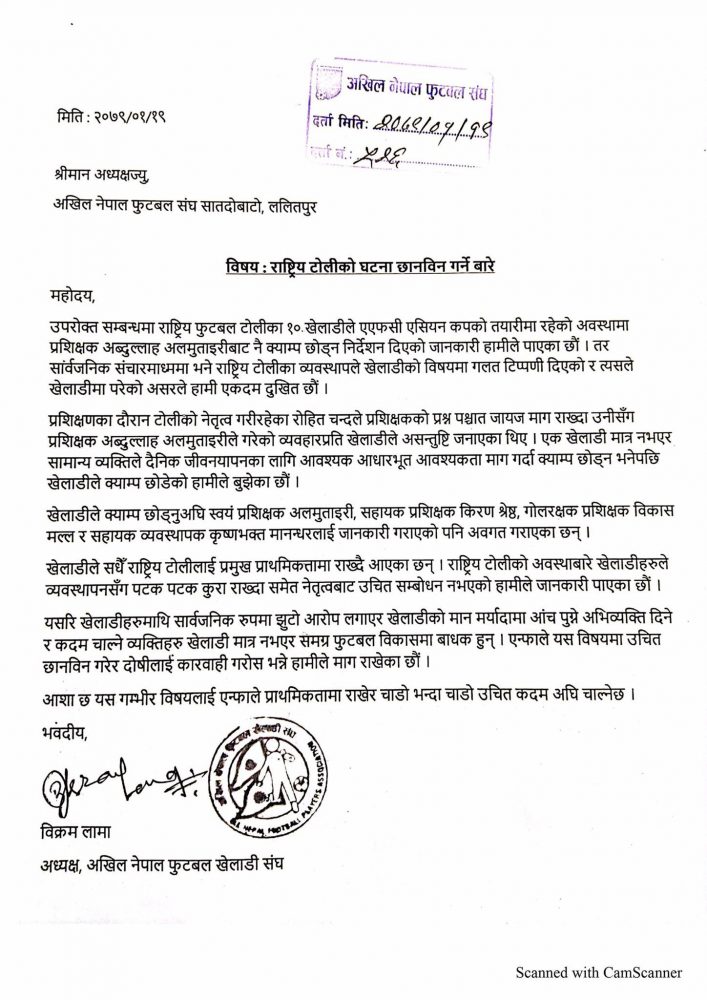 अखिल नेपाल फुटबल संघ
मिति : २०७९/०१/१९
दर्ता मिति: २०७९/०१/१९
दर्ता नं.:
श्रीमान अध्यक्षज्यु,
अखिल नेपाल फुटबल संघ सातदोबाटो, ललितपुर
विषय : राष्ट्रिय टोलीको घटना छानविन गर्ने बारे
महोदय,
उपरोक्त सम्बन्धमा राष्ट्रिय फुटबल टोलीका १० खेलाडीले एएफसी एसियन कपको तयारीमा रहेको अवस्थामा
प्रशिक्षक अब्दुल्लाह अलमुताइरीबाट नै क्याम्प छोड्न निर्देशन दिएको जानकारी हामीले पाएका छौं । तर
सार्वजनिक संचारमाध्यममा भने राष्ट्रिय टोलीका व्यवस्थापले खेलाडीको विषयमा गलत टिप्पणी दिएको र त्यसले
खेलाडीमा परेको असरले हामी एकदम दुखित छौं ।
प्रशिक्षणका दौरान टोलीको नेतृत्व गरीरहेका रोहित चन्दले प्रशिक्षकको प्रश्न पश्चात जायज माग राख्दा उनीसँग
प्रशिक्षक अब्दुल्लाह अलमुताइरीले गरेको व्यवहारप्रति खेलाडीले असन्तुष्टि जनाएका थिए । एक खेलाडी मात्र नभएर
सामान्य व्यक्तिले दैनिक जीवनयापनका लागि आवश्यक आधारभूत आवश्यकता माग गर्दा क्याम्प छोड्न भनेपछि
खेलाडीले क्याम्प छोडेको हामीले बुझेका छौं ।
खेलाडीले क्याम्प छोड्नुअघि स्वयं प्रशिक्षक अलमुताइरी, सहायक प्रशिक्षक किरण श्रेष्ठ, गोलरक्षक प्रशिक्षक विकास
मल्ल र सहायक व्यवस्थापक कृष्णभक्त मानन्धरलाई जानकारी गराएको पनि अवगत गराएका छन् ।
खेलाडीले सधैँ राष्ट्रिय टोलीलाई प्रमुख प्राथमिकतामा राख्दै आएका छन् । राष्ट्रिय टोलीको अवस्थाबारे खेलाडीहरुले
व्यवस्थापनसँग पटक पटक कुरा राख्दा समेत नेतृत्वबाट उचित सम्बोधन नभएको हामीले जानकारी पाएका छौं ।
यसरि खेलाडीहरुमाथि सार्वजनिक रुपमा झुटो आरोप लगाएर खेलाडीको मान मर्यादामा आंच पुग्ने अभिव्यक्ति दिने
र कदम चाल्ने व्यक्तिहरु खेलाडी मात्र नभएर समग्र फुटबल विकासमा बाधक हुन् । एन्फाले यस विषयमा उचित
छानविन गरेर दोषीलाई कारवाही गरोस भन्ने हामीले माग राखेका छौं ।
आशा छ यस गम्भीर विषयलाई एन्फाले प्राथमिकतामा राखेर चाडो भन्दा चाडो उचित कदम अघि चाल्नेछ ।
भवदीय,
अखिल नेपाल फुटबल खेलाडी संघ
ALL NEPAL FOOTBALL PLAYERS ASSOCIATION
विक्रम लामा
अध्यक्ष, अखिल नेपाल फुटबल खेलाडी संघ
Scanned with CamScanner